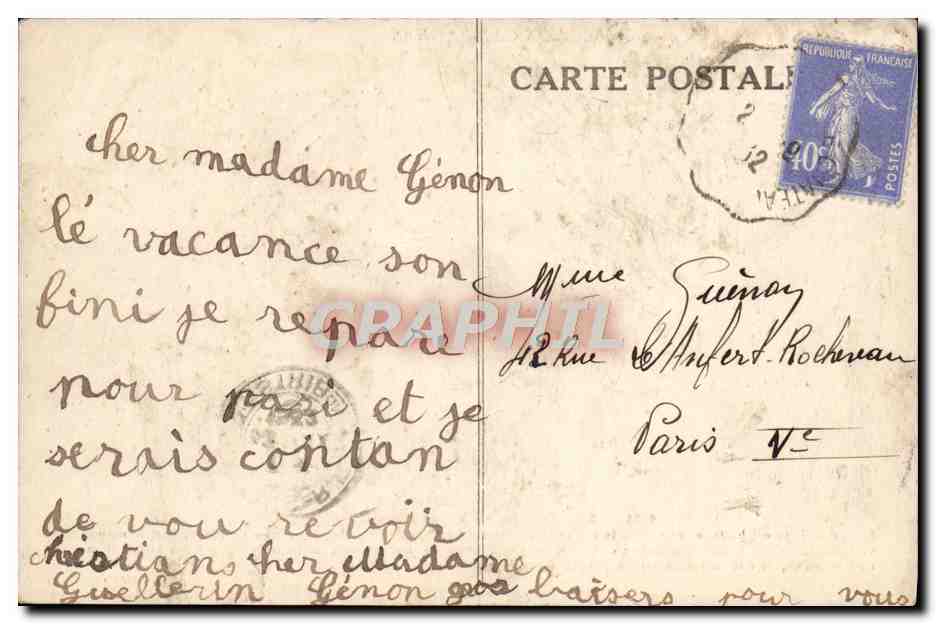 CARTE POSTALE
REPUBLIQUE FRANÇAISE
40c
POSTES
2
32
cher madame Génon
lé vacance son
fini je repare
pour pari et je
serais contan
de vou revoir
cher Madame
Génon gros baisers pour vous
Mme Guénon
42 Rue Rochereau
Paris Ve
CRAPHIL